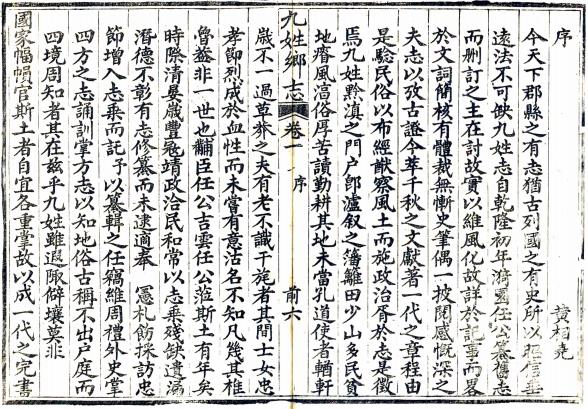 序
黃相堯
今天下郡縣之有志猶古列國之有史所以昭信垂
遠法不可缺九姓志自乾隆初年漪園任公纂舊志
而刪訂之主在討故實以維風化故詳於記事而畧
於文詞簡核有體裁無慚史筆偶一披閱感慨深之
夫志以攷古證今萃千秋之文獻著一代之章程由
是驗民俗以布經猷察風土而施政治胥於志是徵
焉九姓黔滇之門戶卽瀘叙之藩籬田少山多民貧
地瘠風滈俗厚苦讀勤耕其地未當孔道使者輶軒
九姓鄉志
卷一
序
前六
歲不一過草莽之夫有老不識干旄者其間士女忠
孝節烈成於血性而未嘗有意沽名不知凡幾其椎
魯益非一世也黼臣任公吉雲任公蒞斯土有年矣
時際清晏歲豐冠靖政治民和常以志乘殘缺遺漏
潛德不彰有志修纂而未逮適奉　憲札飭採訪忠
節增入志乘而託予以纂輯之任竊維周禮外史掌
四方之志誦訓掌方志以知地俗古稱不出戶庭而
四境周知者其在茲乎九姓雖遐陬僻壤莫非
國家幅幁官斯土者自宜各重掌故以成一代之完書